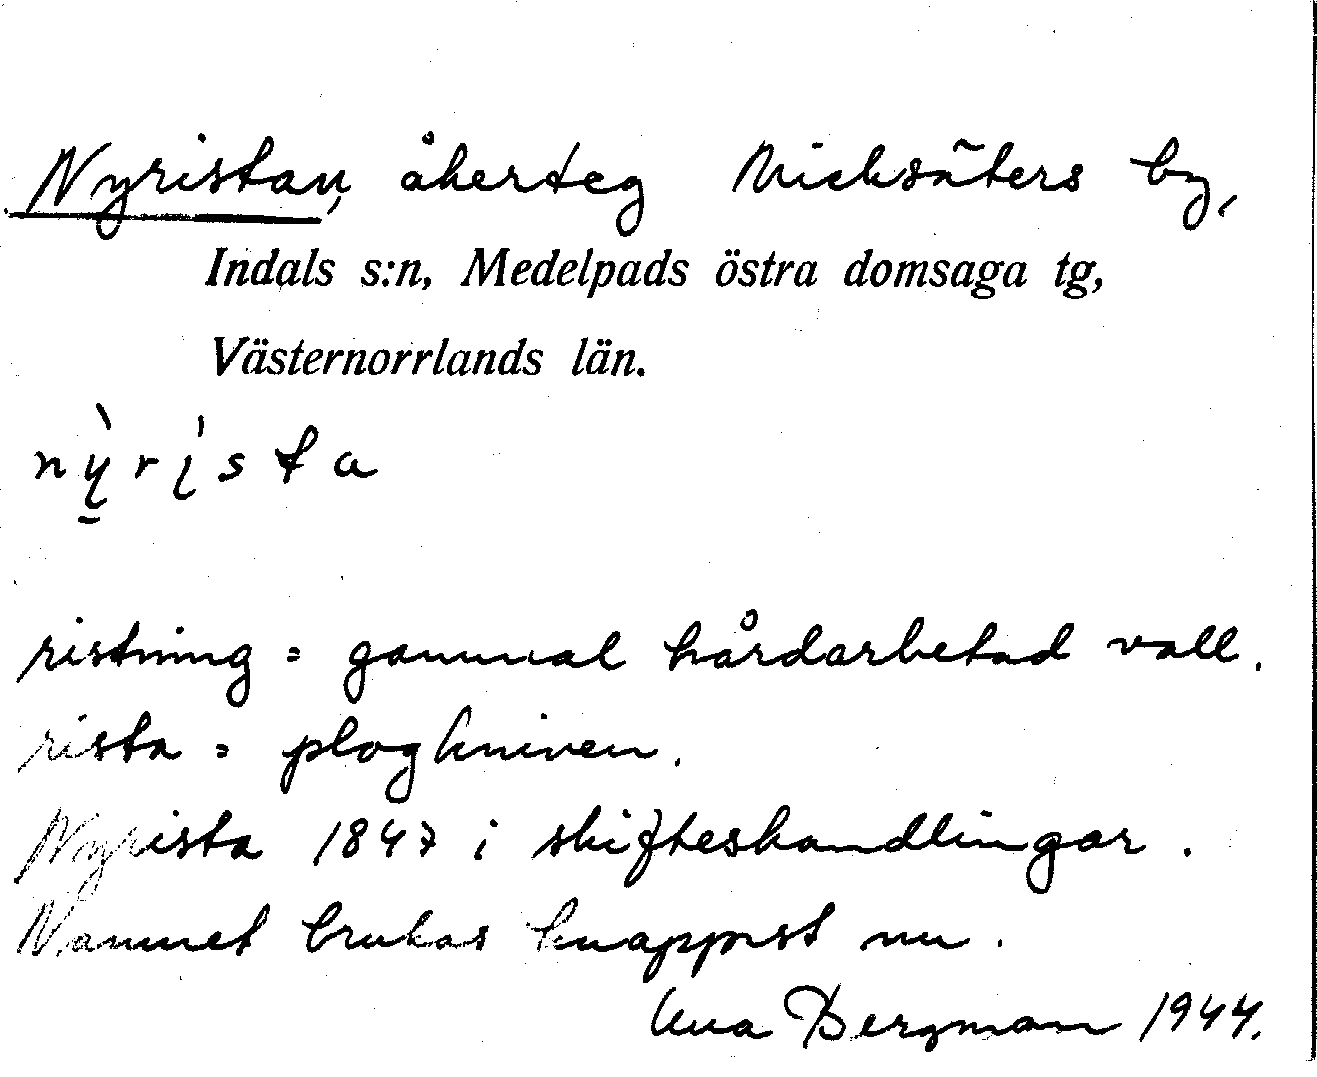 Nyristan, åkerteg Nicksäters by,
Indals s:n, Medelpads östra domsaga tg,
Västernorrlands län.
nỳrista
ristning = gammal hårdarbetad vall.
rista = plogkniven.
Nyrista 1847 i skifteshandlingar.
Namnet brukas knappast nu.
Bergman 1944.